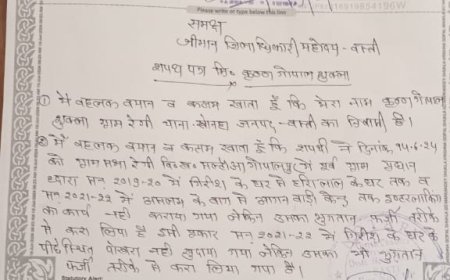 Please write or type below this line
समक्ष
श्रीमान जिलाधिकारी महोदय - बस्ती
शपथ पत्र मि० कृष्ण गोपाल शुक्ला
① मैं बहलफ बयान व कलम खाता हूँ कि मेरा नाम कृष्ण गोपाल
शुक्ला ग्राम रेंगी थाना - सोनहा जनपद - बस्ती का निवासी हूँ।
② मैं बहलफ बयान व कलम खाता हूँ कि शपथी ने दिनांक, 14-6-24
को ग्राम सभा रेंगी वि० ख० सल्टौआ गोपालपुर में पूर्व ग्राम प्रधान
द्वारा सन् 2019-20 में गिरीश के घर से हरीलाल के घर तक व
सन 2021-22 में के बाग से आंगनवाड़ी केन्द्र तक इण्टरलाकिंग
का कार्य नहीं कराया गया लेकिन उसका भुगतान फर्जी तरीके
से करा लिया है इसी प्रकार सन 2021-22 में गिरीश के घर के
पीछे स्थित पोखरा नहीं खुदाया गया लेकिन उसका भी भुगतान
फर्जी तरीके से करा लिया गया है।
Statutory Alert: